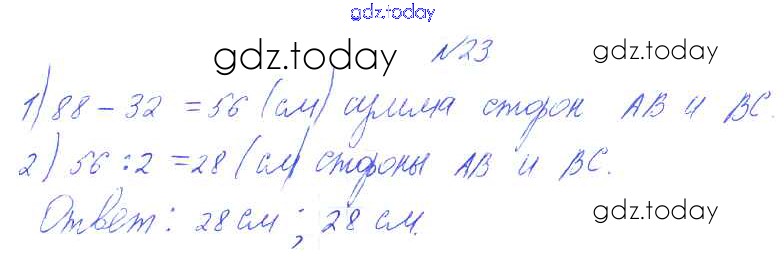 gdz.today
gdz.today №23 gdz.today
1) 88 - 32 = 56 (см) сумма сторон AB и BC.
2) 56 : 2 = 28 (см) стороны AB и BC.
Ответ: 28 см; 28 см.
gdz.today